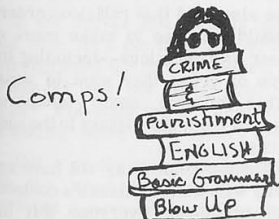 Comps!
CRIME
&
Punishment
ENGLISH
Basic Grammar
Blow Up